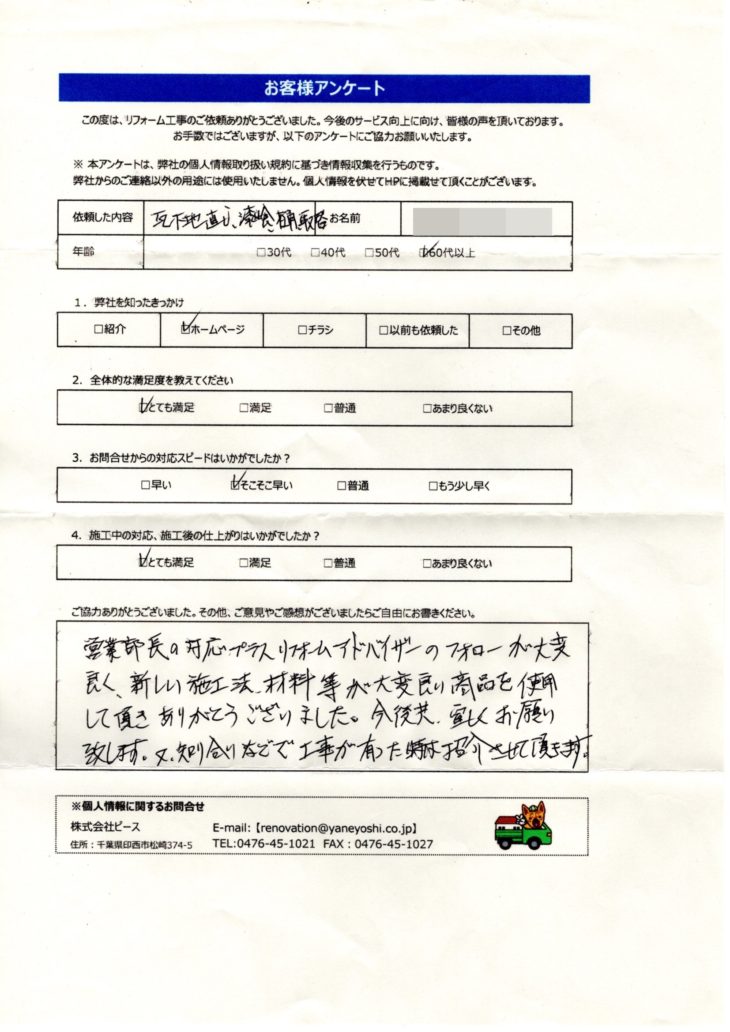 お客様アンケート
この度は、リフォーム工事のご依頼ありがとうございました。今後のサービス向上に向け、皆様の声を頂いております。
お手数ではございますが、以下のアンケートにご協力お願いいたします。
※ 本アンケートは、弊社の個人情報取り扱い規約に基づき情報収集を行うものです。
弊社からのご連絡以外の用途には使用いたしません。個人情報を伏せてHPに掲載せて頂くことがございます。
依頼した内容 瓦下地直し、漆喰、雨樋 お名前
年齢 □30代 □40代 □50代 ☑60代以上
1．弊社を知ったきっかけ
□紹介 ☑ホームページ □チラシ □以前も依頼した □その他
2．全体的な満足度を教えてください
☑とても満足 □満足 □普通 □あまり良くない
3．お問合せからの対応スピードはいかがでしたか？
□早い ☑そこそこ早い □普通 □もう少し早く
4．施工中の対応、施工後の仕上がりはいかがでしたか？
☑とても満足 □満足 □普通 □あまり良くない
ご協力ありがとうございました。その他、ご意見やご感想がございましたらご自由にお書きください。
営業部長の対応プラスリフォームアドバイザーのフォローが大変
良く、新しい施工法、材料等が大変良い商品を使用
して頂きありがとうございました。今後共、宜しくお願い
致します。又、知り合いなどで工事が有った時は紹介させて頂きます。
※個人情報に関するお問合せ
株式会社ピース E-mail:【renovation@yaneyoshi.co.jp】
住所：千葉県印西市松崎374-5 TEL:0476-45-1021 FAX：0476-45-1027